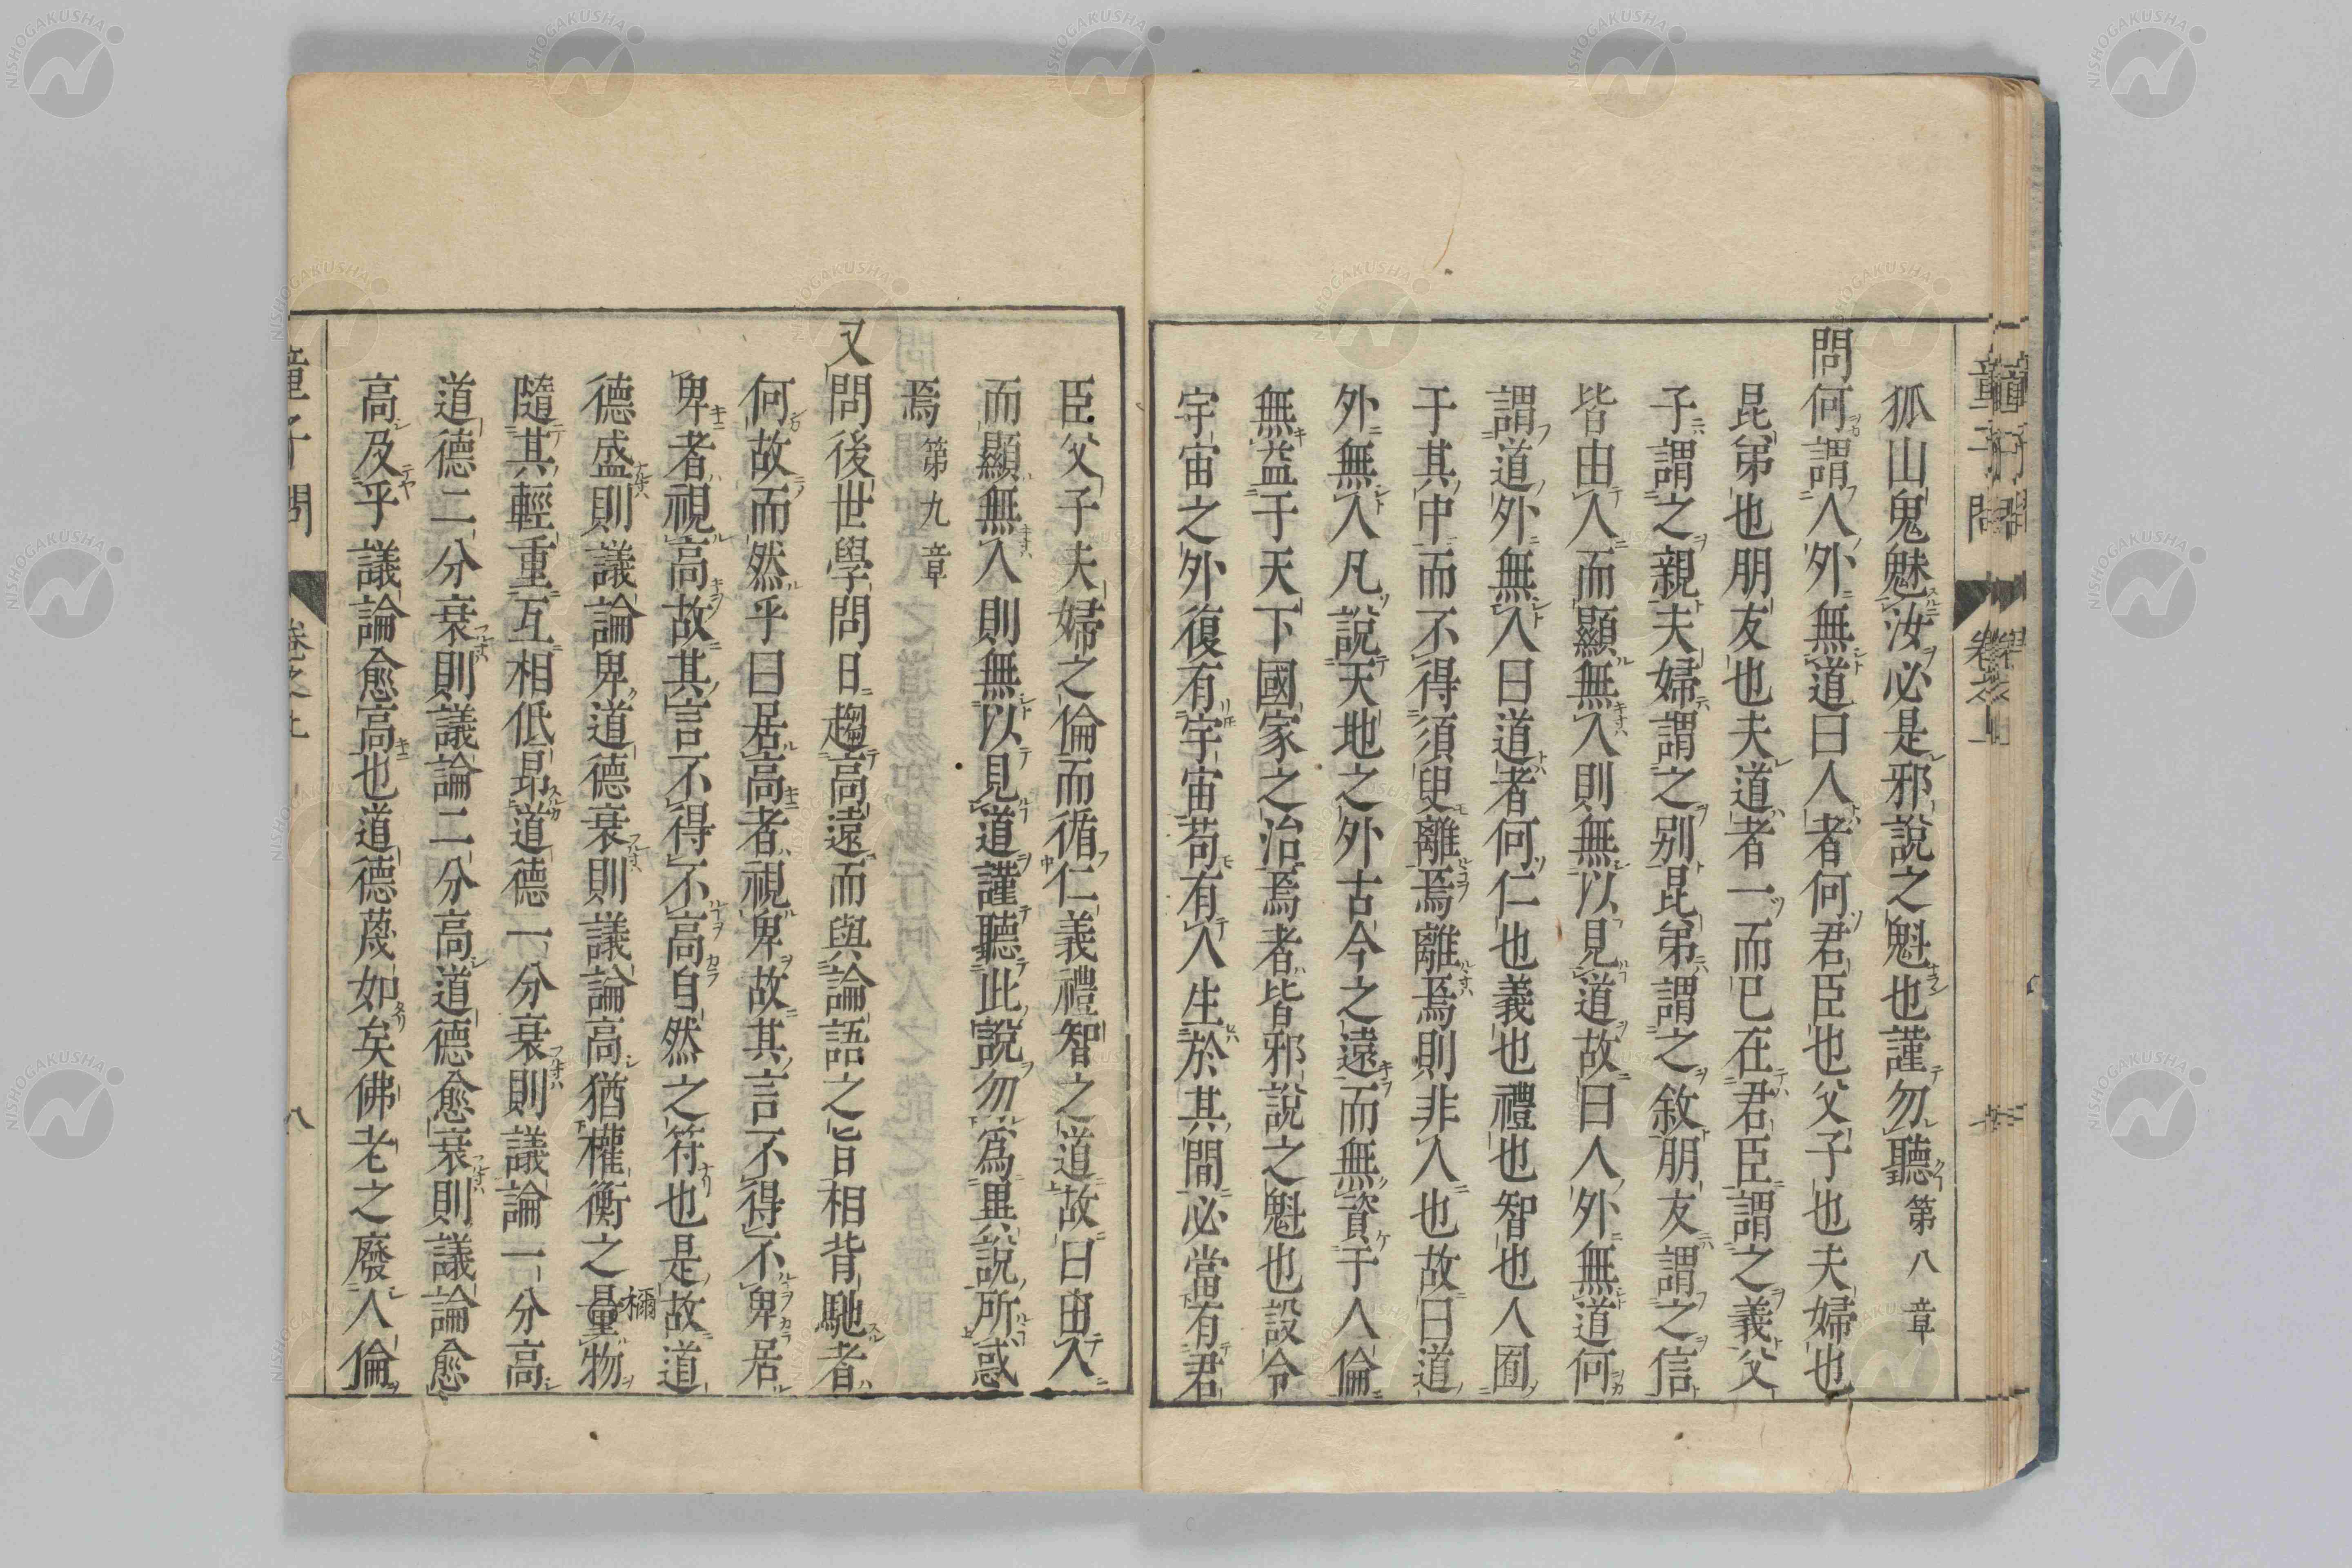 狐山鬼魅汝必是邪說之魁也謹勿聽第八章
問何謂人外無道曰人者何君臣也父子也夫婦也
昆弟也朋友也夫道者一而已在君臣謂之義父
子謂之親夫婦謂之別昆弟謂之敘朋友謂之信
皆由人而顯無人則無以見道故曰人外無道何
謂道外無人曰道者何仁也義也禮也智也人囿
于其中而不得須臾離焉離焉則非人也故曰道
外無人凡說天地之外古今之遠而無資于人倫
無益于天下國家之治焉者皆邪說之魁也設令
宇宙之外復有宇宙苟有人生於其間必當有君
臣父子夫婦之倫而循仁義禮智之道故曰由人
而顯無人則無以見道謹聽此說勿爲異說所惑
焉第九章
又問後世學問日趨高遠而與論語之旨相背馳者
何故而然乎曰居高者視卑故其言不得不卑居
卑者視高故其言不得不高自然之符也是故道
德盛則議論卑道德衰則議論高猶權衡之量物
隨其輕重互相低昻道德一分衰則議論一分高
道德二分衰則議論二分高道德愈衰則議論愈
高及乎議論愈高也道德蔑如矣佛老之廢人倫
童子問 卷之上 八
NISHOGAKUSHA